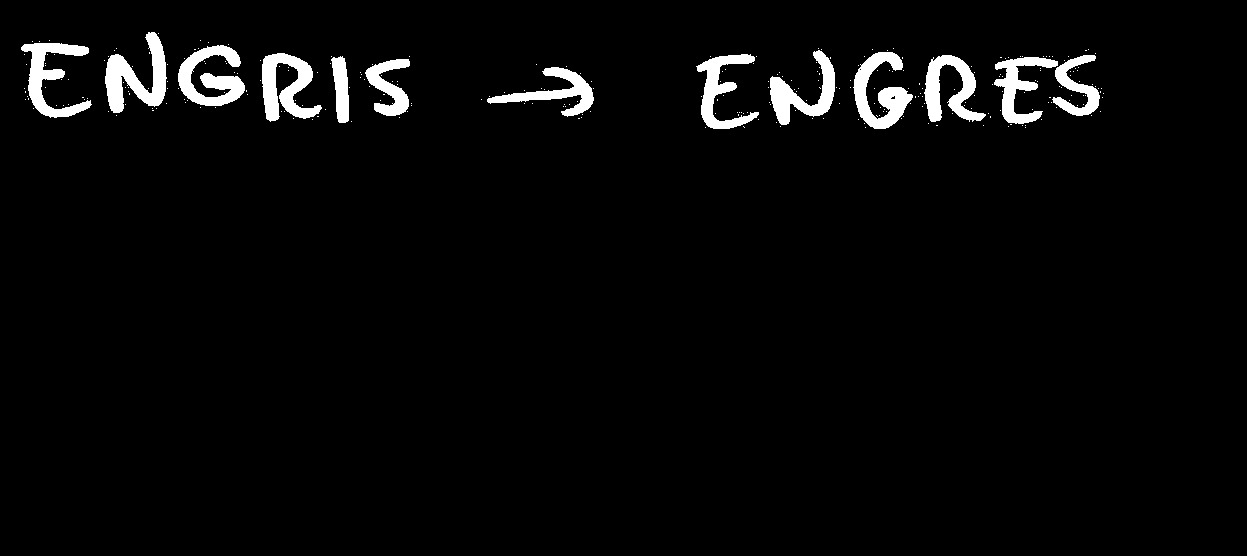 ENGRIS → ENGRES